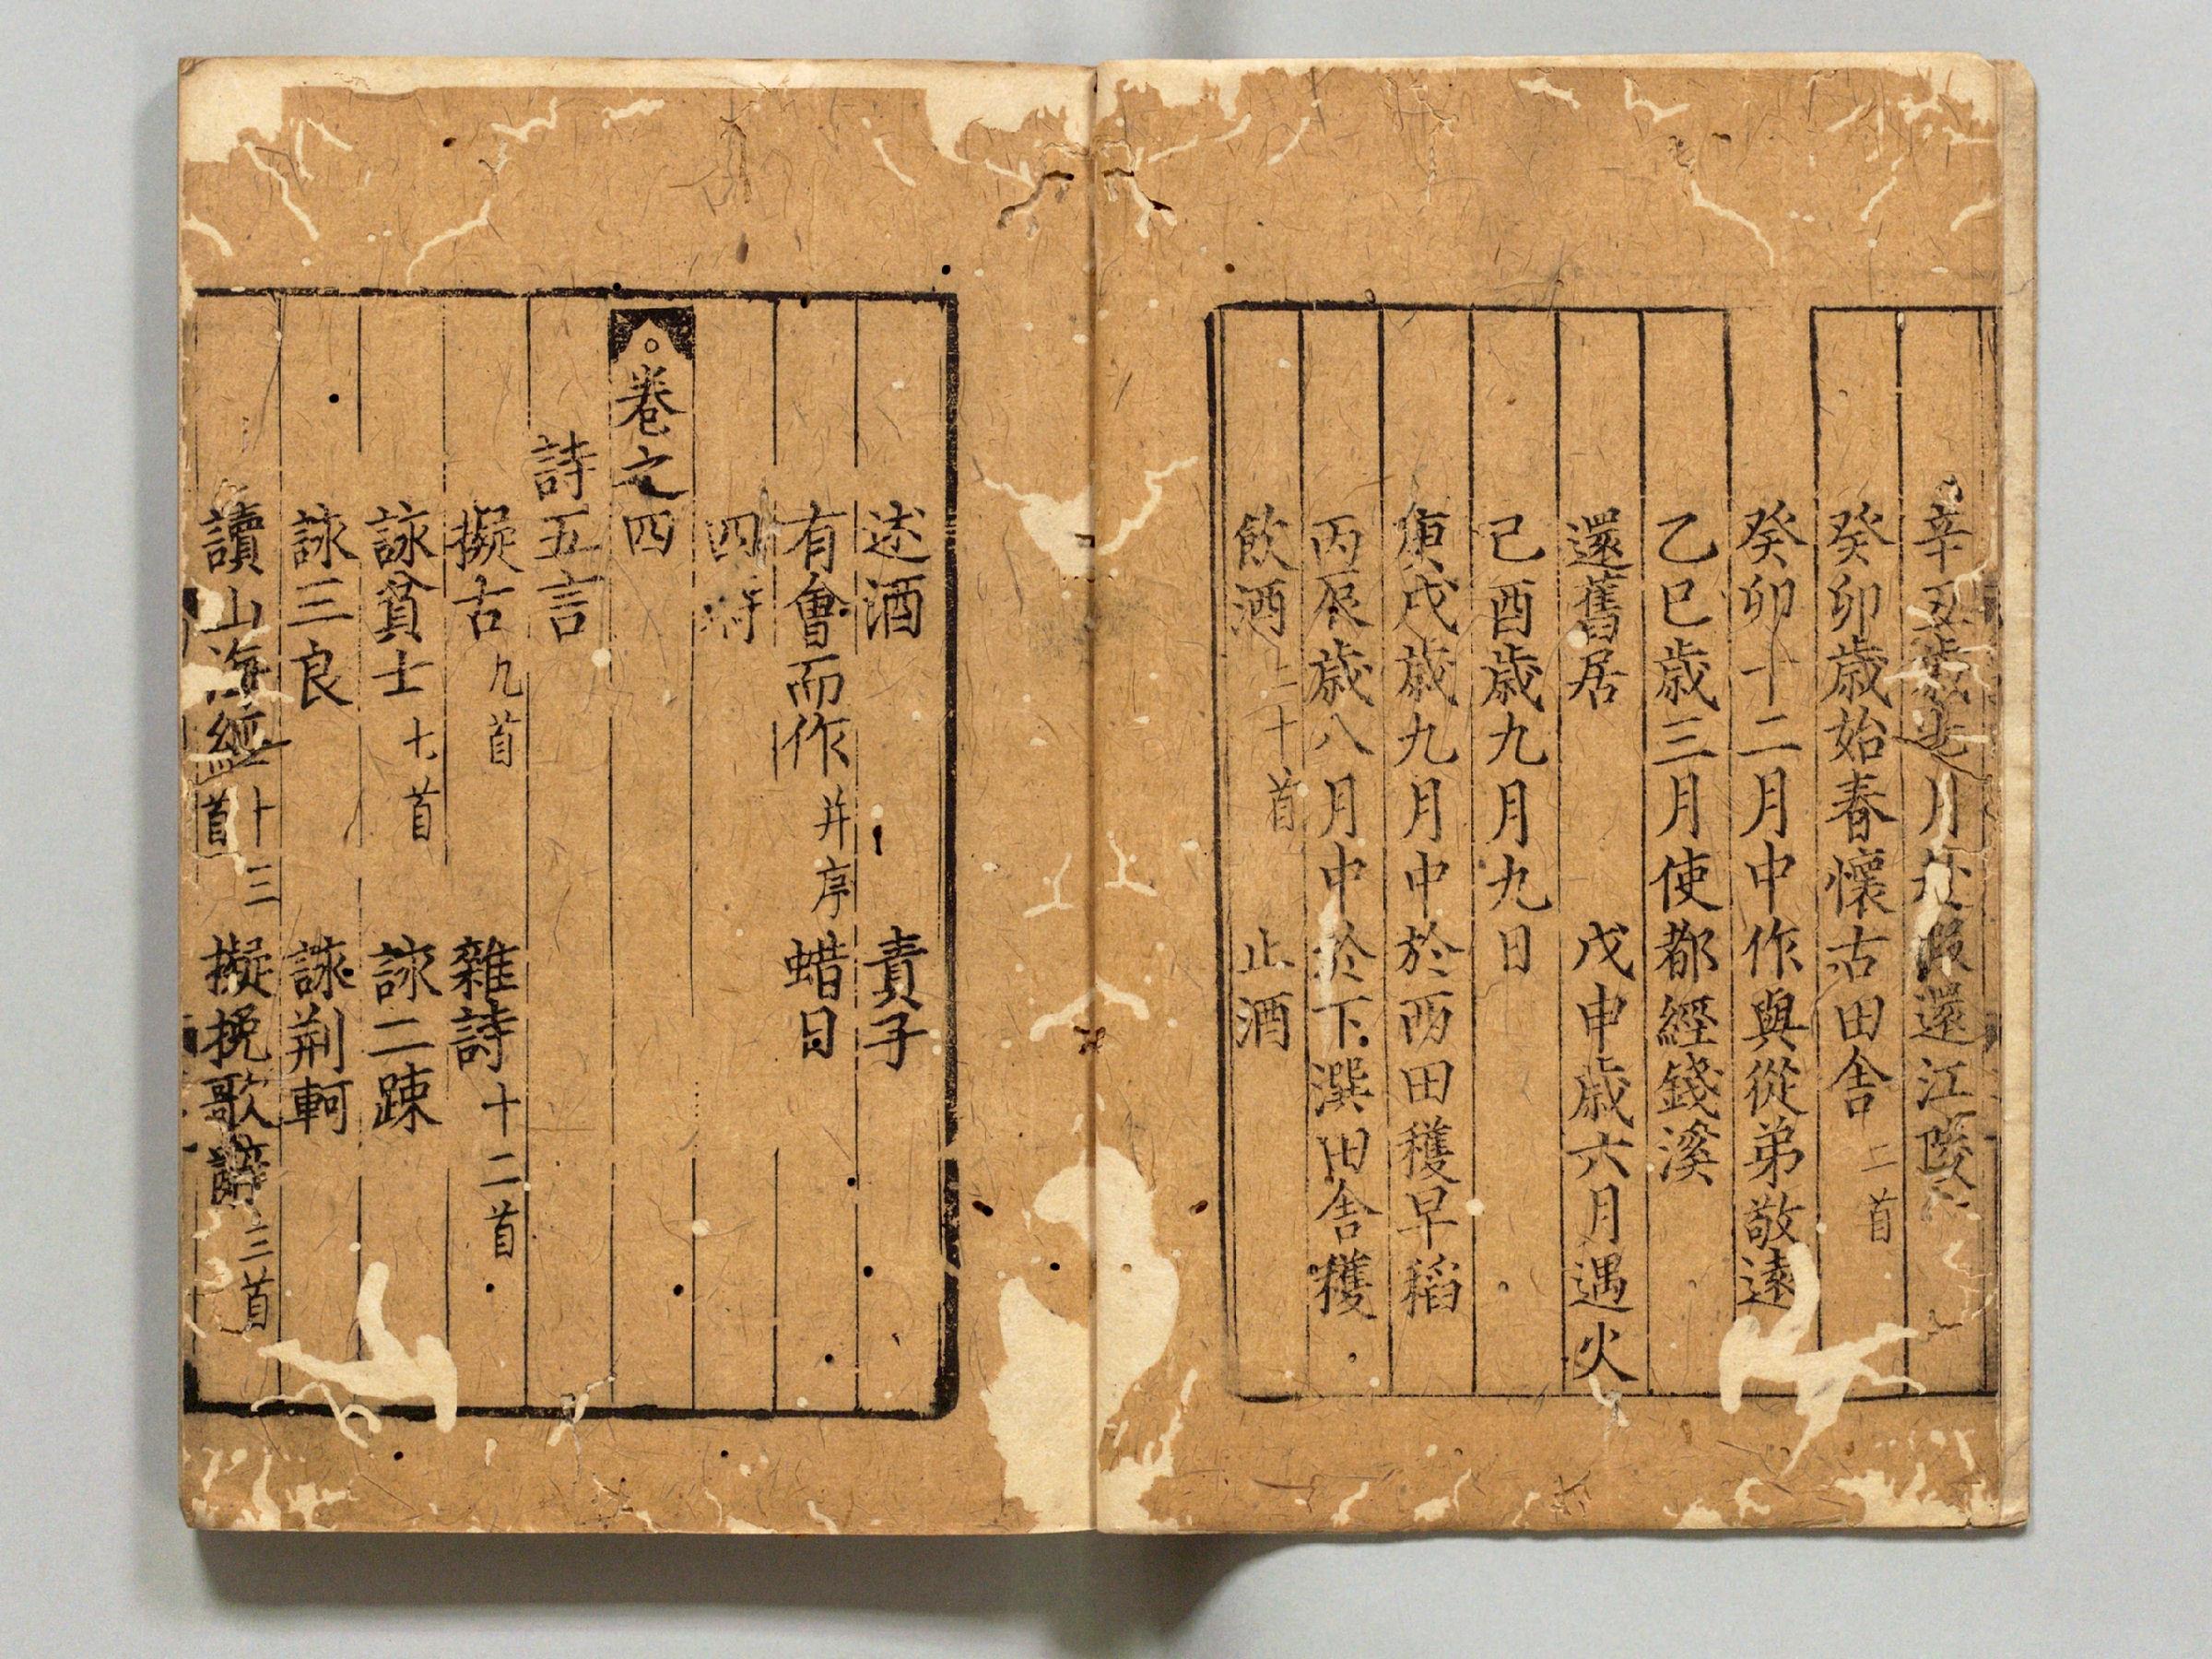 辛丑歲七月赴假還江陵
癸卯歲始春懷古田舍 二首
癸卯十二月中作與從弟敬遠
乙巳歲三月使都經錢溪
還舊居 戊申歲六月遇火
己酉歲九月九日
庚戌歲九月中於西田穫早稻
丙辰歲八月中於下潠田舍穫
飲酒 二十首 止酒
述酒 責子
有會而作 并序 蜡日
四時
卷之四
詩五言
擬古 九首 雜詩 十二首
詠貧士 七首 詠二踈
詠三良 詠荆軻
讀山海經 十三首 擬挽歌辭 三首